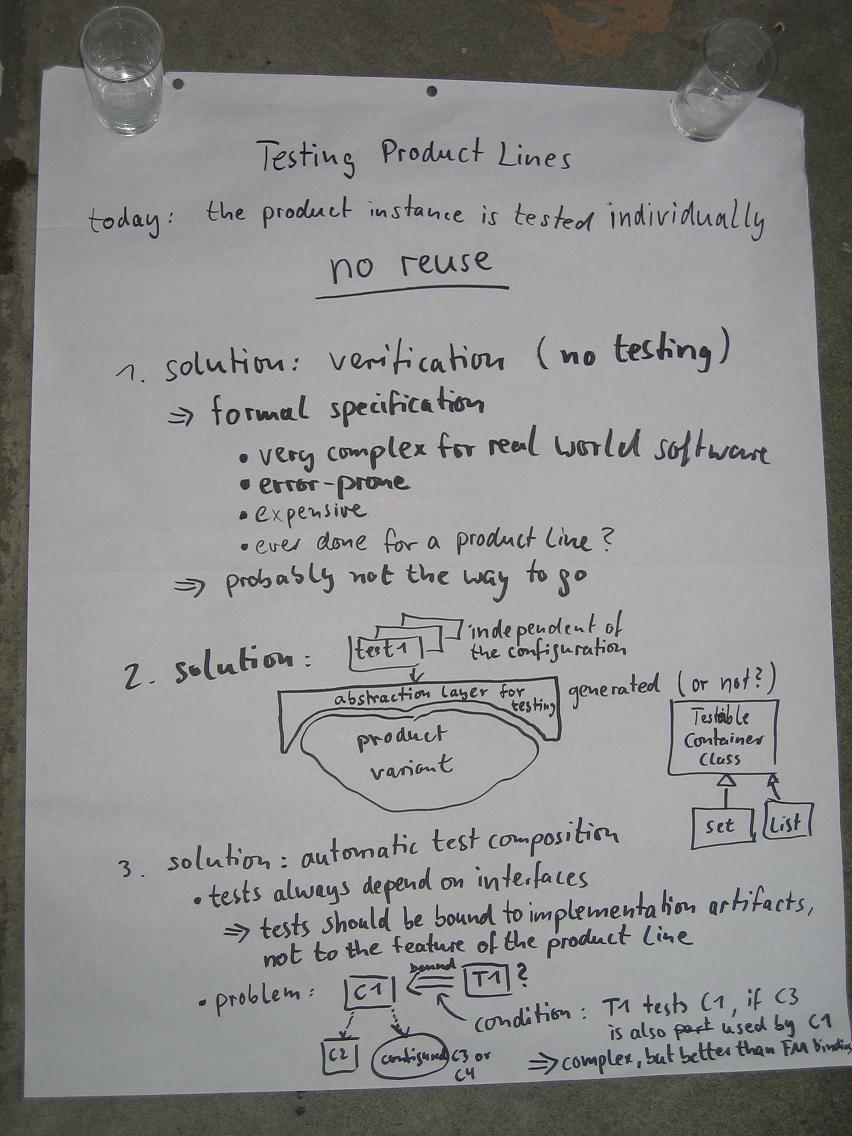 Testing Product Lines
today: the product instance is tested individually
no reuse
1. solution: verification (no testing)
⇒ formal specification
• very complex for real world software
• error-prone
• expensive
• ever done for a product line?
⇒ probably not the way to go
2. solution:
test 1
independent of
the configuration
abstraction layer for
testing
generated (or not?)
product
variant
Testable
Container
Class
Set
List
3. solution: automatic test composition
• tests always depend on interfaces
⇒ tests should be bound to implementation artifacts,
not to the feature of the product line
• problem:
C1
bound
T1?
C2
configured C3 or
C4
condition: T1 tests C1, if C3
is also part used by C1
⇒ complex, but better than FM binding